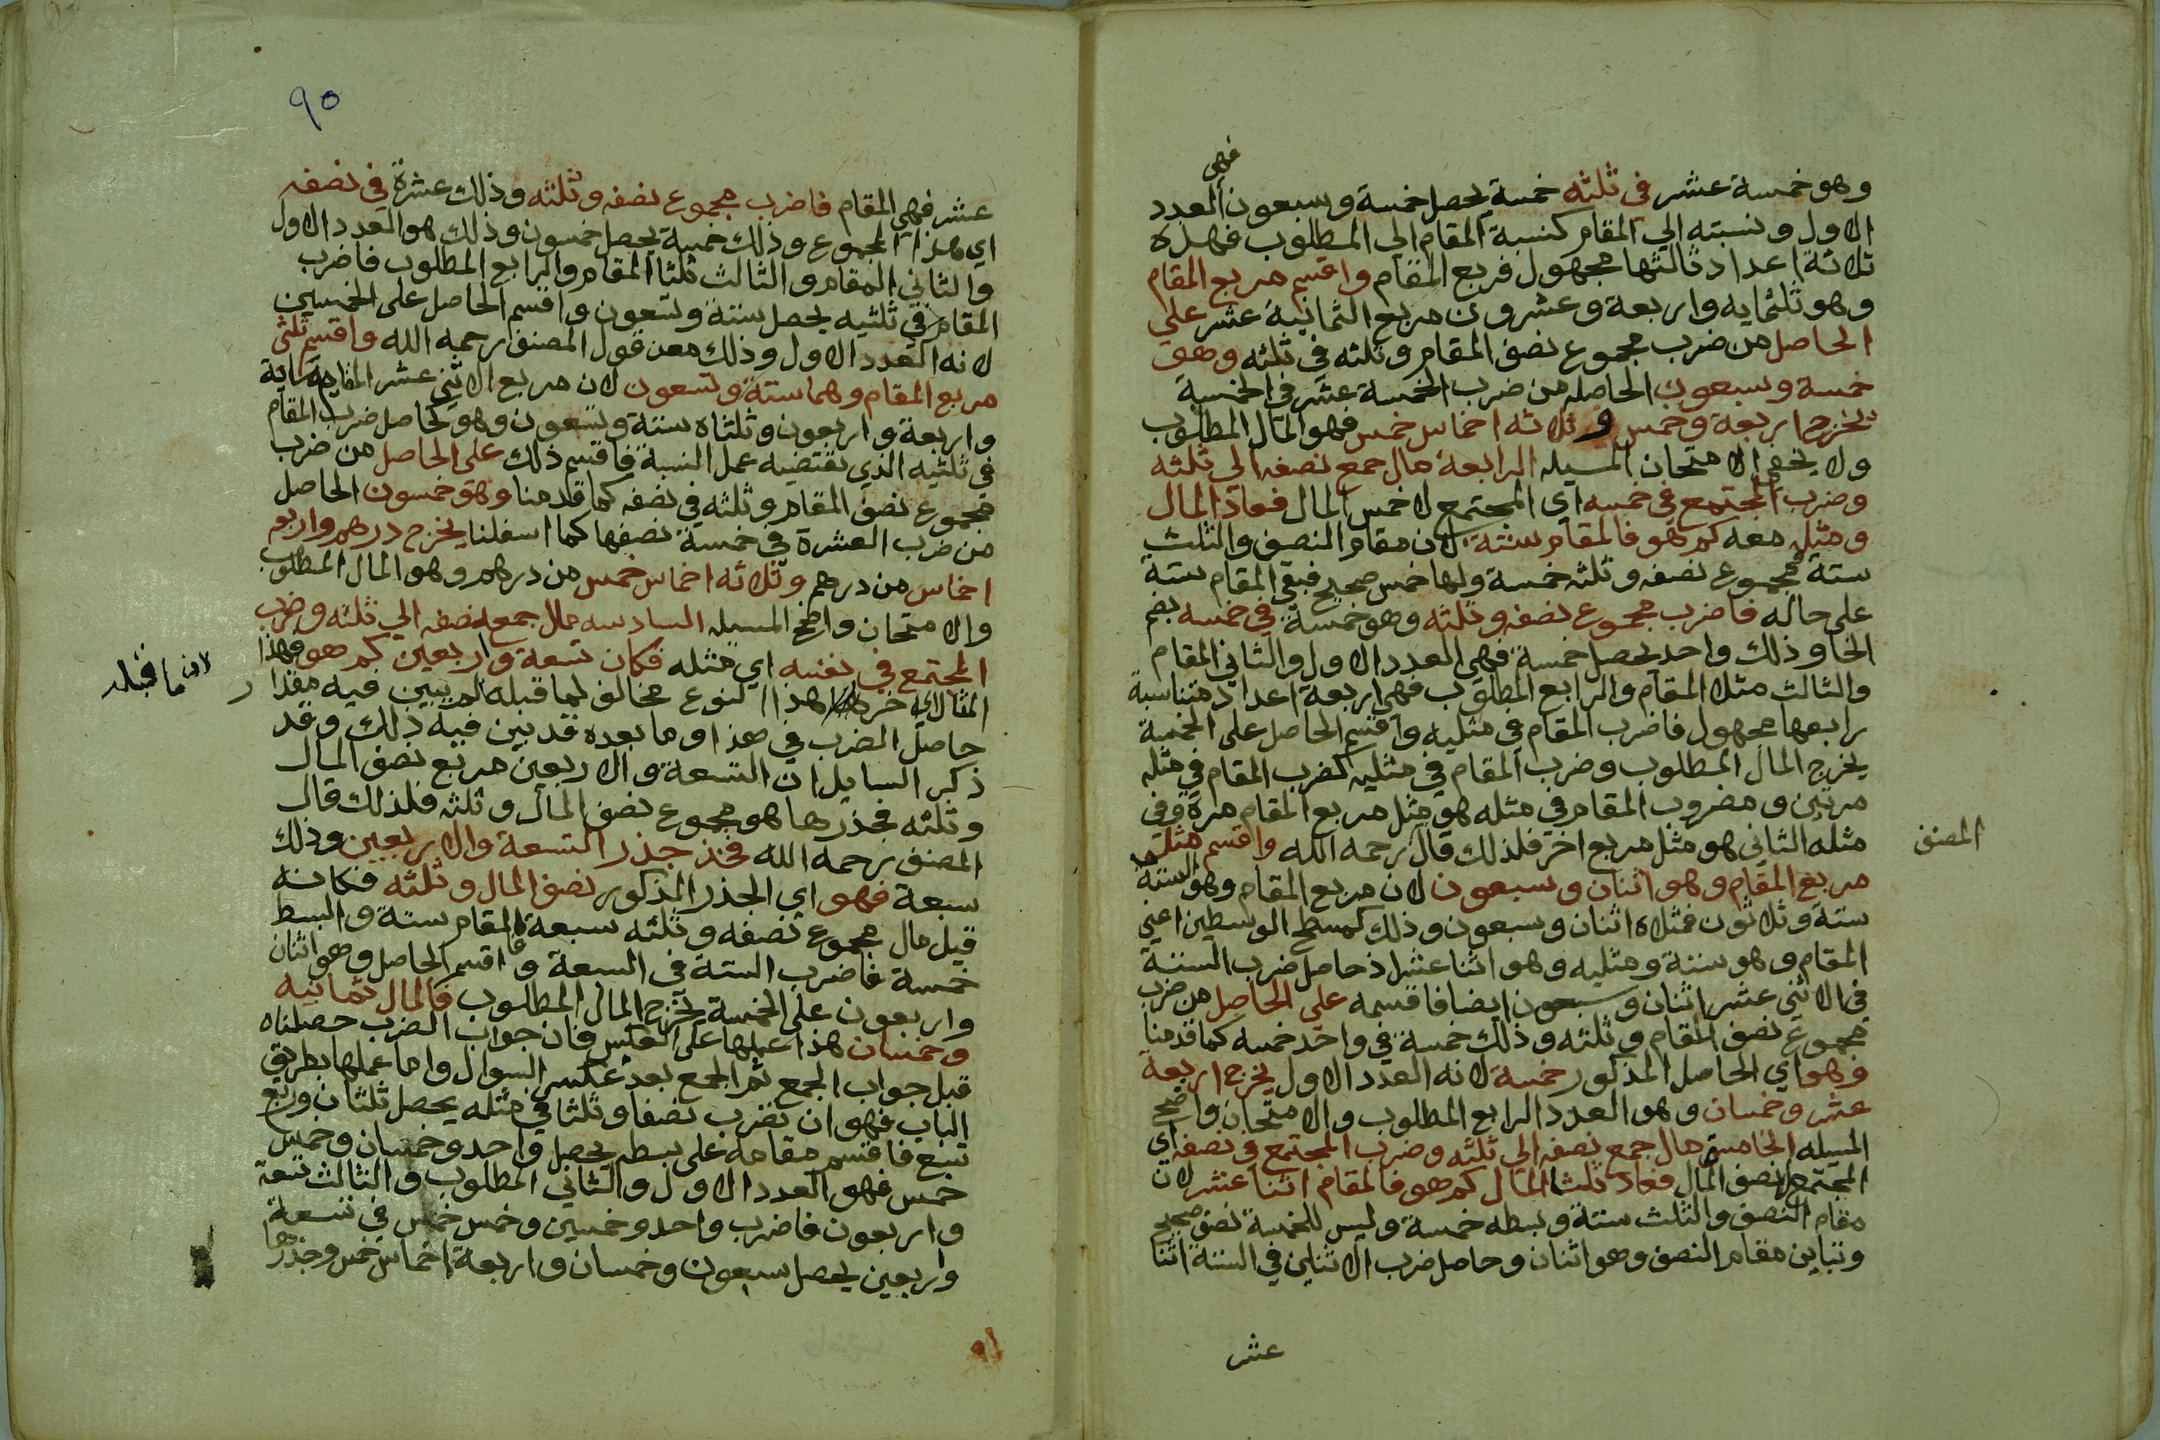 فهي
وهو خمسة عشر في ثلثه خمسة يحصل خمسة وسبعون العدد
الاول ونسبته الي المقام كنسبة المقام الي المطلوب فهذه
ثلاثة اعداد ثالثها مجهول فربع المقام واقسم مربع المقام
وهو ثلثمايه واربعة وعشرون مربع الثمانية عشر علي
الحاصل من ضرب مجموع نصف المقام وثلثه في ثلثه وهو
خمسة وسبعون الحاصله من ضرب الخمسة عشر في الخمسة
يخرج اربعة وخمس و ثلاثه اخماس خمس فهو المال المطلوب
ولا يخفي الامتحان المسيله الرابعة مال جمع نصفه الي ثلثه
وضرب المجتمع في خمسه اي المجتمع لا خمس المال فعاد المال
ومثله معه كم هو فالمقام ستة لان مقام النصف والثلث
ستة فمجموع نصفه وثلثه خمسة ولها خمس صحيح فبقي المقام ستة
علي حاله فاضرب مجموع نصفه وثلثه وهو خمسة في خمسه بضم
الخا وذلك واحد يحصل خمسة فهي العدد الاول والثاني المقام
والثالث مثلا المقام والرابع المطلوب فهي اربعة اعداد متناسبة
رابعها مجهول فاضرب المقام في مثليه واقسم الحاصل على الخمسة
يخرج المال المطلوب وضرب المقام في مثليه كضرب المقام في مثله
مرتين ومضروب المقام في مثله هو مثل مربع المقام مرة وفي
مثله الثاني هو مثل مربع اخر فلذلك قال رحمه الله واقسم مثلي
المصنف
مربع المقام وهو اثنان وسبعون لان مربع المقام وهو الستة
ستة وثلاثون فمثلاه اثنان وسبعون وذلك كمسطح الوسطين اعني
المقام وهو ستة ومثليه وهو اثنا عشر اذ حاصل ضرب الستة
في الاثني عشر اثنان وسبعون ايضا فاقسمه علي الحاصل من ضرب
مجموع نصف المقام وثلثه وذلك خمسة في واحد خمسه كما قدمنا
وهو اي الحاصل المذكور خمسة لانه العدد الاول يخرج اربعة
عشر وخمسان وهو العدد الرابع المطلوب والامتحان واضح
المسيله الخامسة مال جمع نصفه الي ثلثه وضرب المجتمع في نصفه اي
المجتمع لا نصف المال فعاد ثلثا المال كم هو فالمقام اثنا عشر لان
مقام النصف والثلث ستة وبسطه خمسة وليس للخمسة نصف صحيح
وتباين مقام النصف وهو اثنان وحاصل ضرب الاثنين في الستة اثنا
عشر
٩٥
عشر فهي المقام فاضرب مجموع نصفه وثلثه وذلك عشرة في نصفه
اي هذا المجموع وذلك خمسة يحصل خمسون وذلك هو العدد الاول
والثاني المقام والثالث ثلثا المقام والرابع المطلوب فاضرب
المقام في ثلثيه يحصل ستة وتسعون واقسم الحاصل على الخمسين
لانه العدد الاول وذلك معن قول المصنف رحمه الله واقسم ثلثي
مربع المقام وهما ستة وتسعون لان مربع الاثني عشر المقام ماية
واربعة واربعون وثلثاه ستة وتسعون وهو كحاصل ضرب المقام
في ثلثيه الذي تقتضيه عمل النسبة فاقسم ذلك على الحاصل من ضرب
مجموع نصف المقام وثلثه في نصفه كما قدمنا وهو خمسون الحاصل
من ضرب العشرة في خمسة نصفها كما اسفلنا يخرج درهم واربع
اخماس من درهم وثلاثه اخماس خمس من درهم وهو المال المطلوب
والامتحان واضح المسيله السادسه مال جمع نصفه الي ثلثه وضرب
المجتمع في نفسه اي مثله فكان تسعة واربعين كم هو فهذا
لان ما قبله
المثال اي اخره هذا النوع مخالف لما قبله لم يبين فيه مقدار
حاصل الضرب في هذا وما بعده قد بين فيه ذلك وقد
ذكر السايل ان التسعة والاربعين مربع نصف المال
وثلثه فجذرها هو مجموع نصف المال وثلثه فلذلك قال
المصنف رحمه الله فخذ جذر التسعة والاربعين وذلك
سبعة فهو اي الجذر المذكور نصف المال وثلثه فكانه
قيل مال مجموع نصفه وثلثه سبعة فالمقام ستة والبسط
خمسة فاضرب الستة في السبعة واقسم الحاصل وهو اثنان
واربعون على الخمسة يخرج المال المطلوب فالمال ثمانيه
وخمسان هذا عملها على العكس فان جواب الضرب حصلناه
قبل جواب الجمع ثم الجمع بعد عكس السوال واما عملها بطريق
الباب فهو ان تضرب نصفا وثلثا في مثله يحصل ثلثان وربع
تسع فاقسم مقامه على بسطه يحصل واحد وخمسان وخمس
خمس فهو العدد الاول والثاني المطلوب والثالث تسعة
واربعون فاضرب واحد وخمسين وخمس خمس في تسعة
واربعين يحصل سبعون وخمسان واربعة اخماس خمس وجذرها